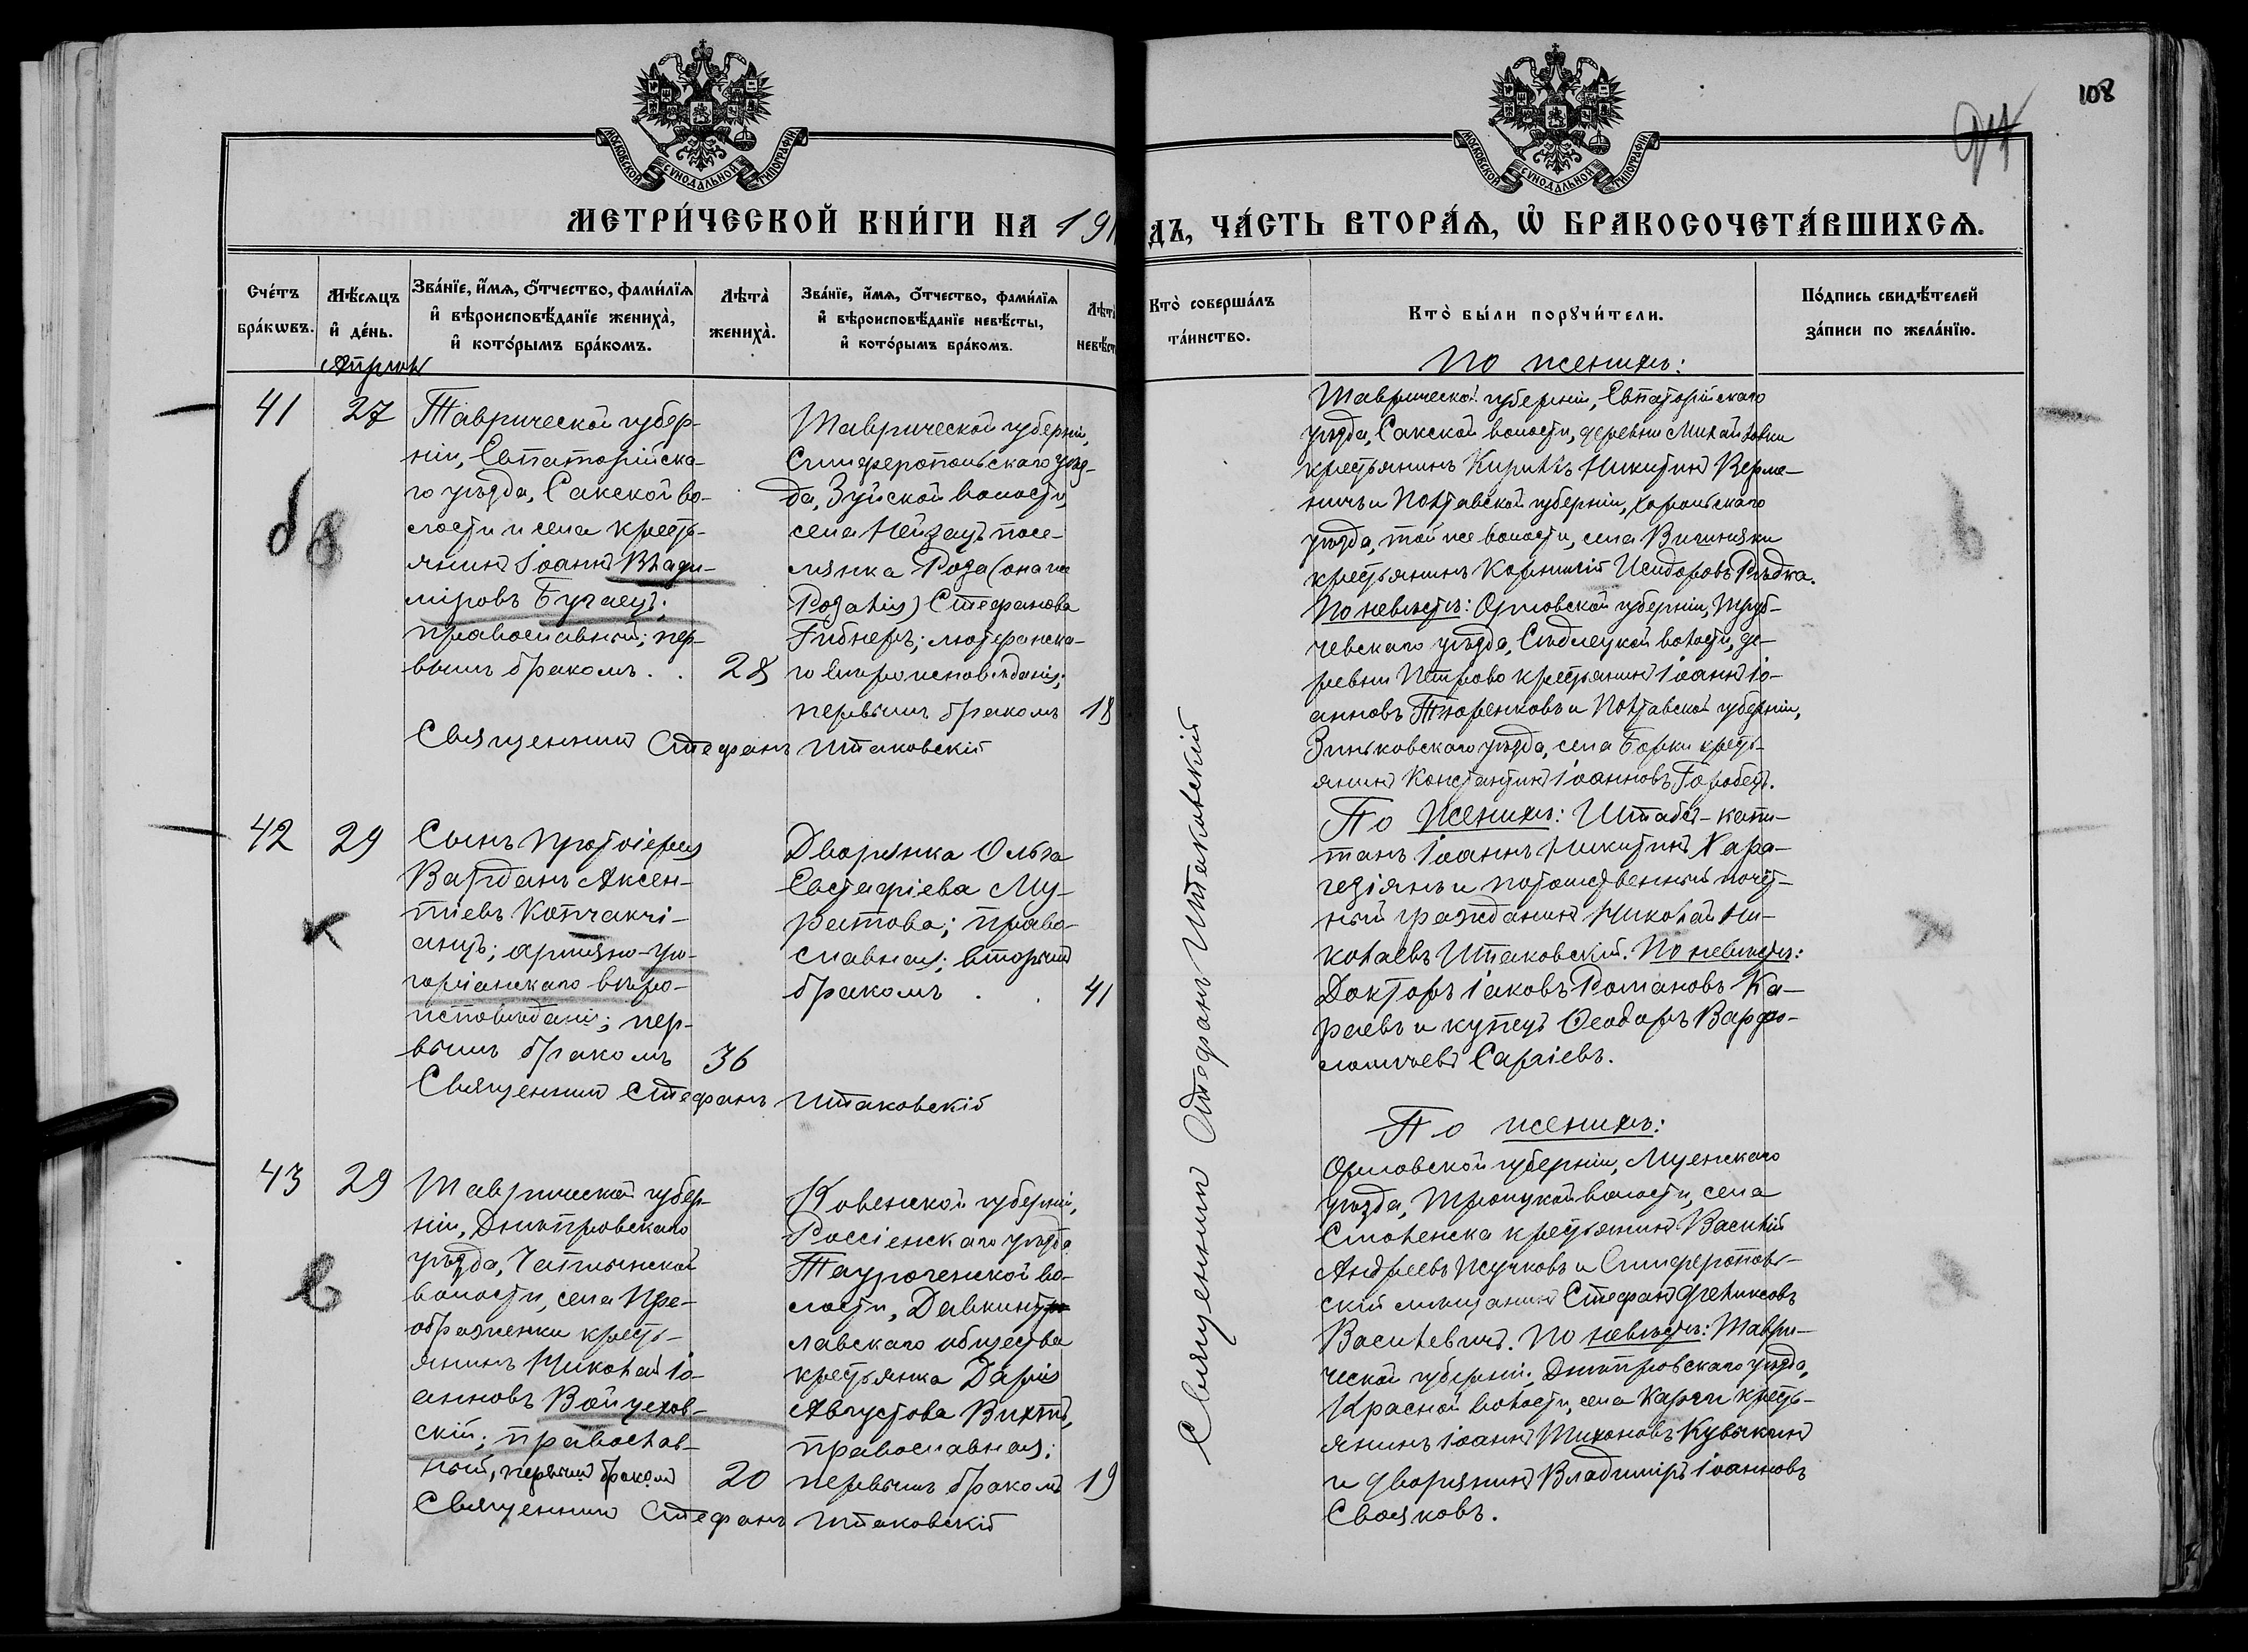 108
МОСКОВСКОЙ СѴНОДАЛЬНОЙ ТИПОГРАФІИ
МОСКОВСКОЙ СѴНОДАЛЬНОЙ ТИПОГРАФІИ
МЕТРИ́ЧЕСКОЙ КНИ́ГИ НА 191
ДЪ, ЧА́СТЬ ВТОРА́Ѧ, Ѡ҆ БРАКОСОЧЕТА́ВШИХСѦ.
Сче́тъ бра́кѡвъ.
Мѣ́сяцъ и҆ де́нь.
Зва́нїе, и҆́мѧ, ѻ҆́тчество, фами́лїѧ
и҆ вѣроисповѣ́данїе жениха̀,
и҆ кото́рымъ бра́комъ.
Лѣта̀ жениха̀.
Зва́нїе, и҆́мѧ, ѻ҆́тчество, фами́лїѧ
и҆ вѣроисповѣ́данїе невѣ́сты,
и҆ кото́рымъ бра́комъ.
Лѣта
невѣст
Кто̀ соверша́лъ
та́инство.
Кто̀ бы́ли порꙋчи́тели.
По́дпись свидѣ́телей
за́писи по жела́нїю.
Апрѣль
41
27
Таврической губер-
ніи, Евпаторійска-
го уѣзда, Сакской во-
лости и села кресть-
янинъ Іоаннъ Влади-
міровъ Бугаецъ;
православный; пер-
вымъ бракомъ.
28
Таврической губерніи,
Симферопольскаго уѣз-
да, Зуйской волости,
села Нейзацъ посе-
лянка Роза (она же
Розалія) Стефанова
Гибнеръ; лютеранска-
го вѣроисповѣданія;
первымъ бракомъ
18
Священникъ Стефанъ Штаковскій
По женихѣ:
Таврической губерніи, Евпаторійскаго
уѣзда, Сакской волости, деревни Михайловки
крестьянинъ Кириллъ Никитинъ Верме-
ничъ и Полтавской губерніи, Хорольскаго
уѣзда, той же волости, села Вишняки
крестьянинъ Корнилій Исидоровъ Рѣдка.
По невѣстѣ: Орловской губерніи, Труб-
чевскаго уѣзда, Сѣдлецкой волости, де-
ревни Петрово крестьянинъ Іоаннъ Іо-
анновъ Тюренковъ и Полтавской губерніи,
Зиньковскаго уѣзда, села Борки кресть-
янинъ Константинъ Іоанновъ Горобецъ.
42
29
Сынъ протоіерея
Вартданъ Аксен-
тіевъ Копчакчі-
анцъ; армяно-гри-
горіанскаго вѣро-
исповѣданія; пер-
вымъ бракомъ
36
Дворянка Ольга
Евстафіева Му-
ратова; право-
славная; вторымъ
бракомъ
41
Священникъ Стефанъ Штаковскій
По женихѣ: Штабсъ-капи-
танъ Іоаннъ Никитинъ Хара-
гезіянъ и потомственный почет-
ный гражданинъ Николай Ни-
колаевъ Штаковскій. По невѣстѣ:
Докторъ Іаковъ Романовъ Ка-
раевъ и купецъ Ѳеодоръ Варфо-
ломеевъ Саргіевъ.
43
29
Таврической губер-
ніи, Днѣпровскаго
уѣзда, Чаплынской
волости, села Пре-
ображенки кресть-
янинъ Николай Іо-
анновъ Войцехов-
скій; православ-
ный, первымъ бракомъ
20
Ковенской губерніи,
Россіенскаго уѣзда
Таурогенской во-
лости,
лавскаго общества
крестьянка Дарія
Августова Вихтъ,
православная;
первымъ бракомъ
19
Священникъ Стефанъ Штаковскій
По женихѣ:
Орловской губерніи, Мценскаго
уѣзда, Троицкой волости, села
Смоленска крестьянинъ Василій
Андреевъ Жучковъ и Симферополь-
скій мѣщанинъ Стефанъ Феликсовъ
Василевичъ. По невѣстѣ: Таври-
ческой губерніи, Днѣпровскаго уѣзда,
Красной волости, села Карги кресть-
янинъ Іоаннъ Тихоновъ Кувыкинъ
и дворянинъ Владиміръ Іоанновъ
Свояковъ.
Священникъ Стефанъ Штаковскій